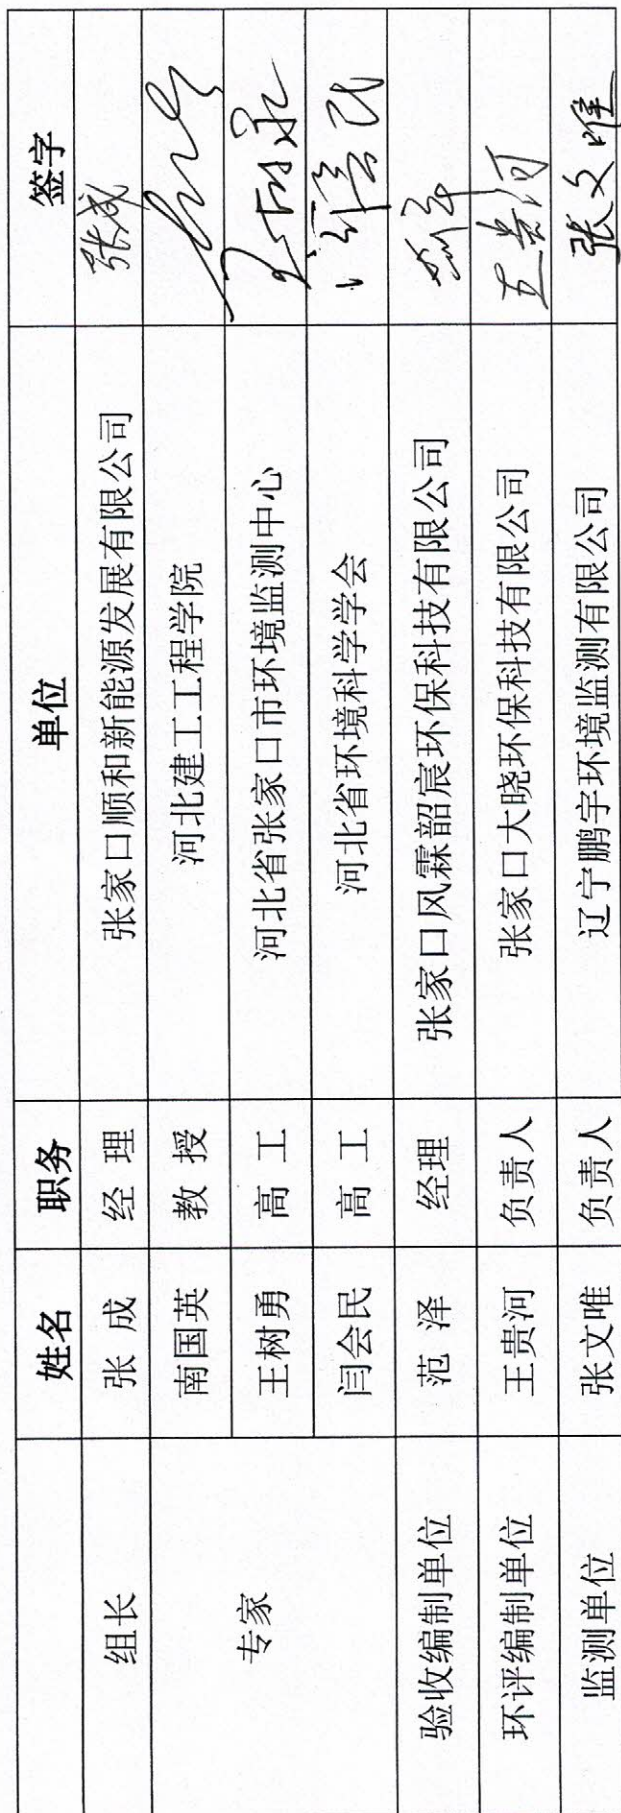 姓名 职务 单位 签字
组长 张成 经理 张家口顺和新能源发展有限公司 张成
专家 南国英 教授 河北建工工程学院
王树勇 高工 河北省张家口市环境监测中心
闫会民 高工 河北省环境科学学会
验收编制单位 范泽 经理 张家口风霖韶宸环保科技有限公司
环评编制单位 王贵河 负责人 张家口大晓环保科技有限公司 王贵河
监测单位 张文唯 负责人 辽宁鹏宇环境监测有限公司 张文唯